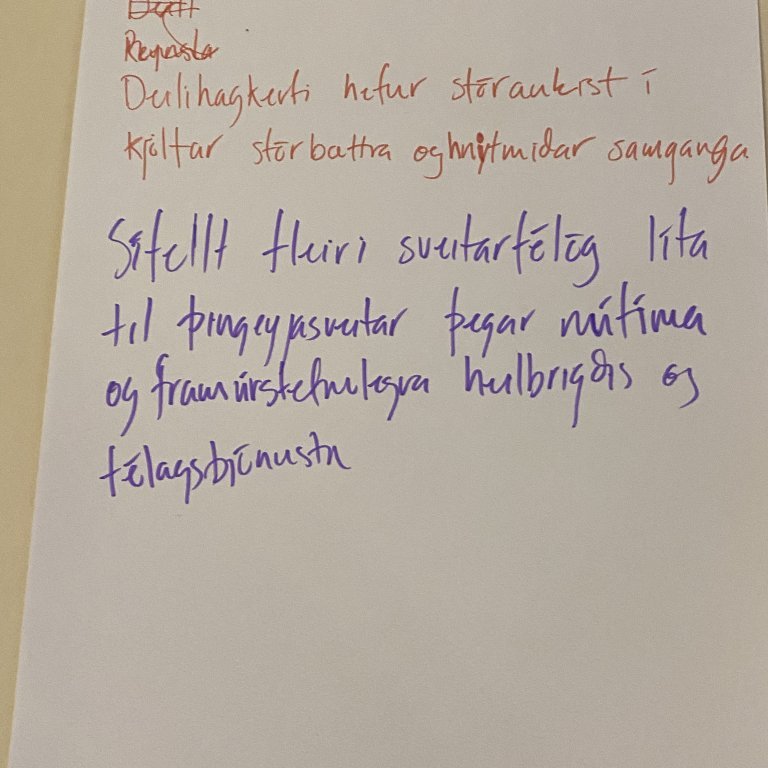 Reynsla
Deilihagkerfi hefur stóraukist í
kjölfar stórbættra og hnitmiðar samganga
Sífellt fleiri sveitarfélög líta
til þingeyjasveitar þegar nútíma
og framúrstefnulegra heilbrigðis og
félagsþjónusta